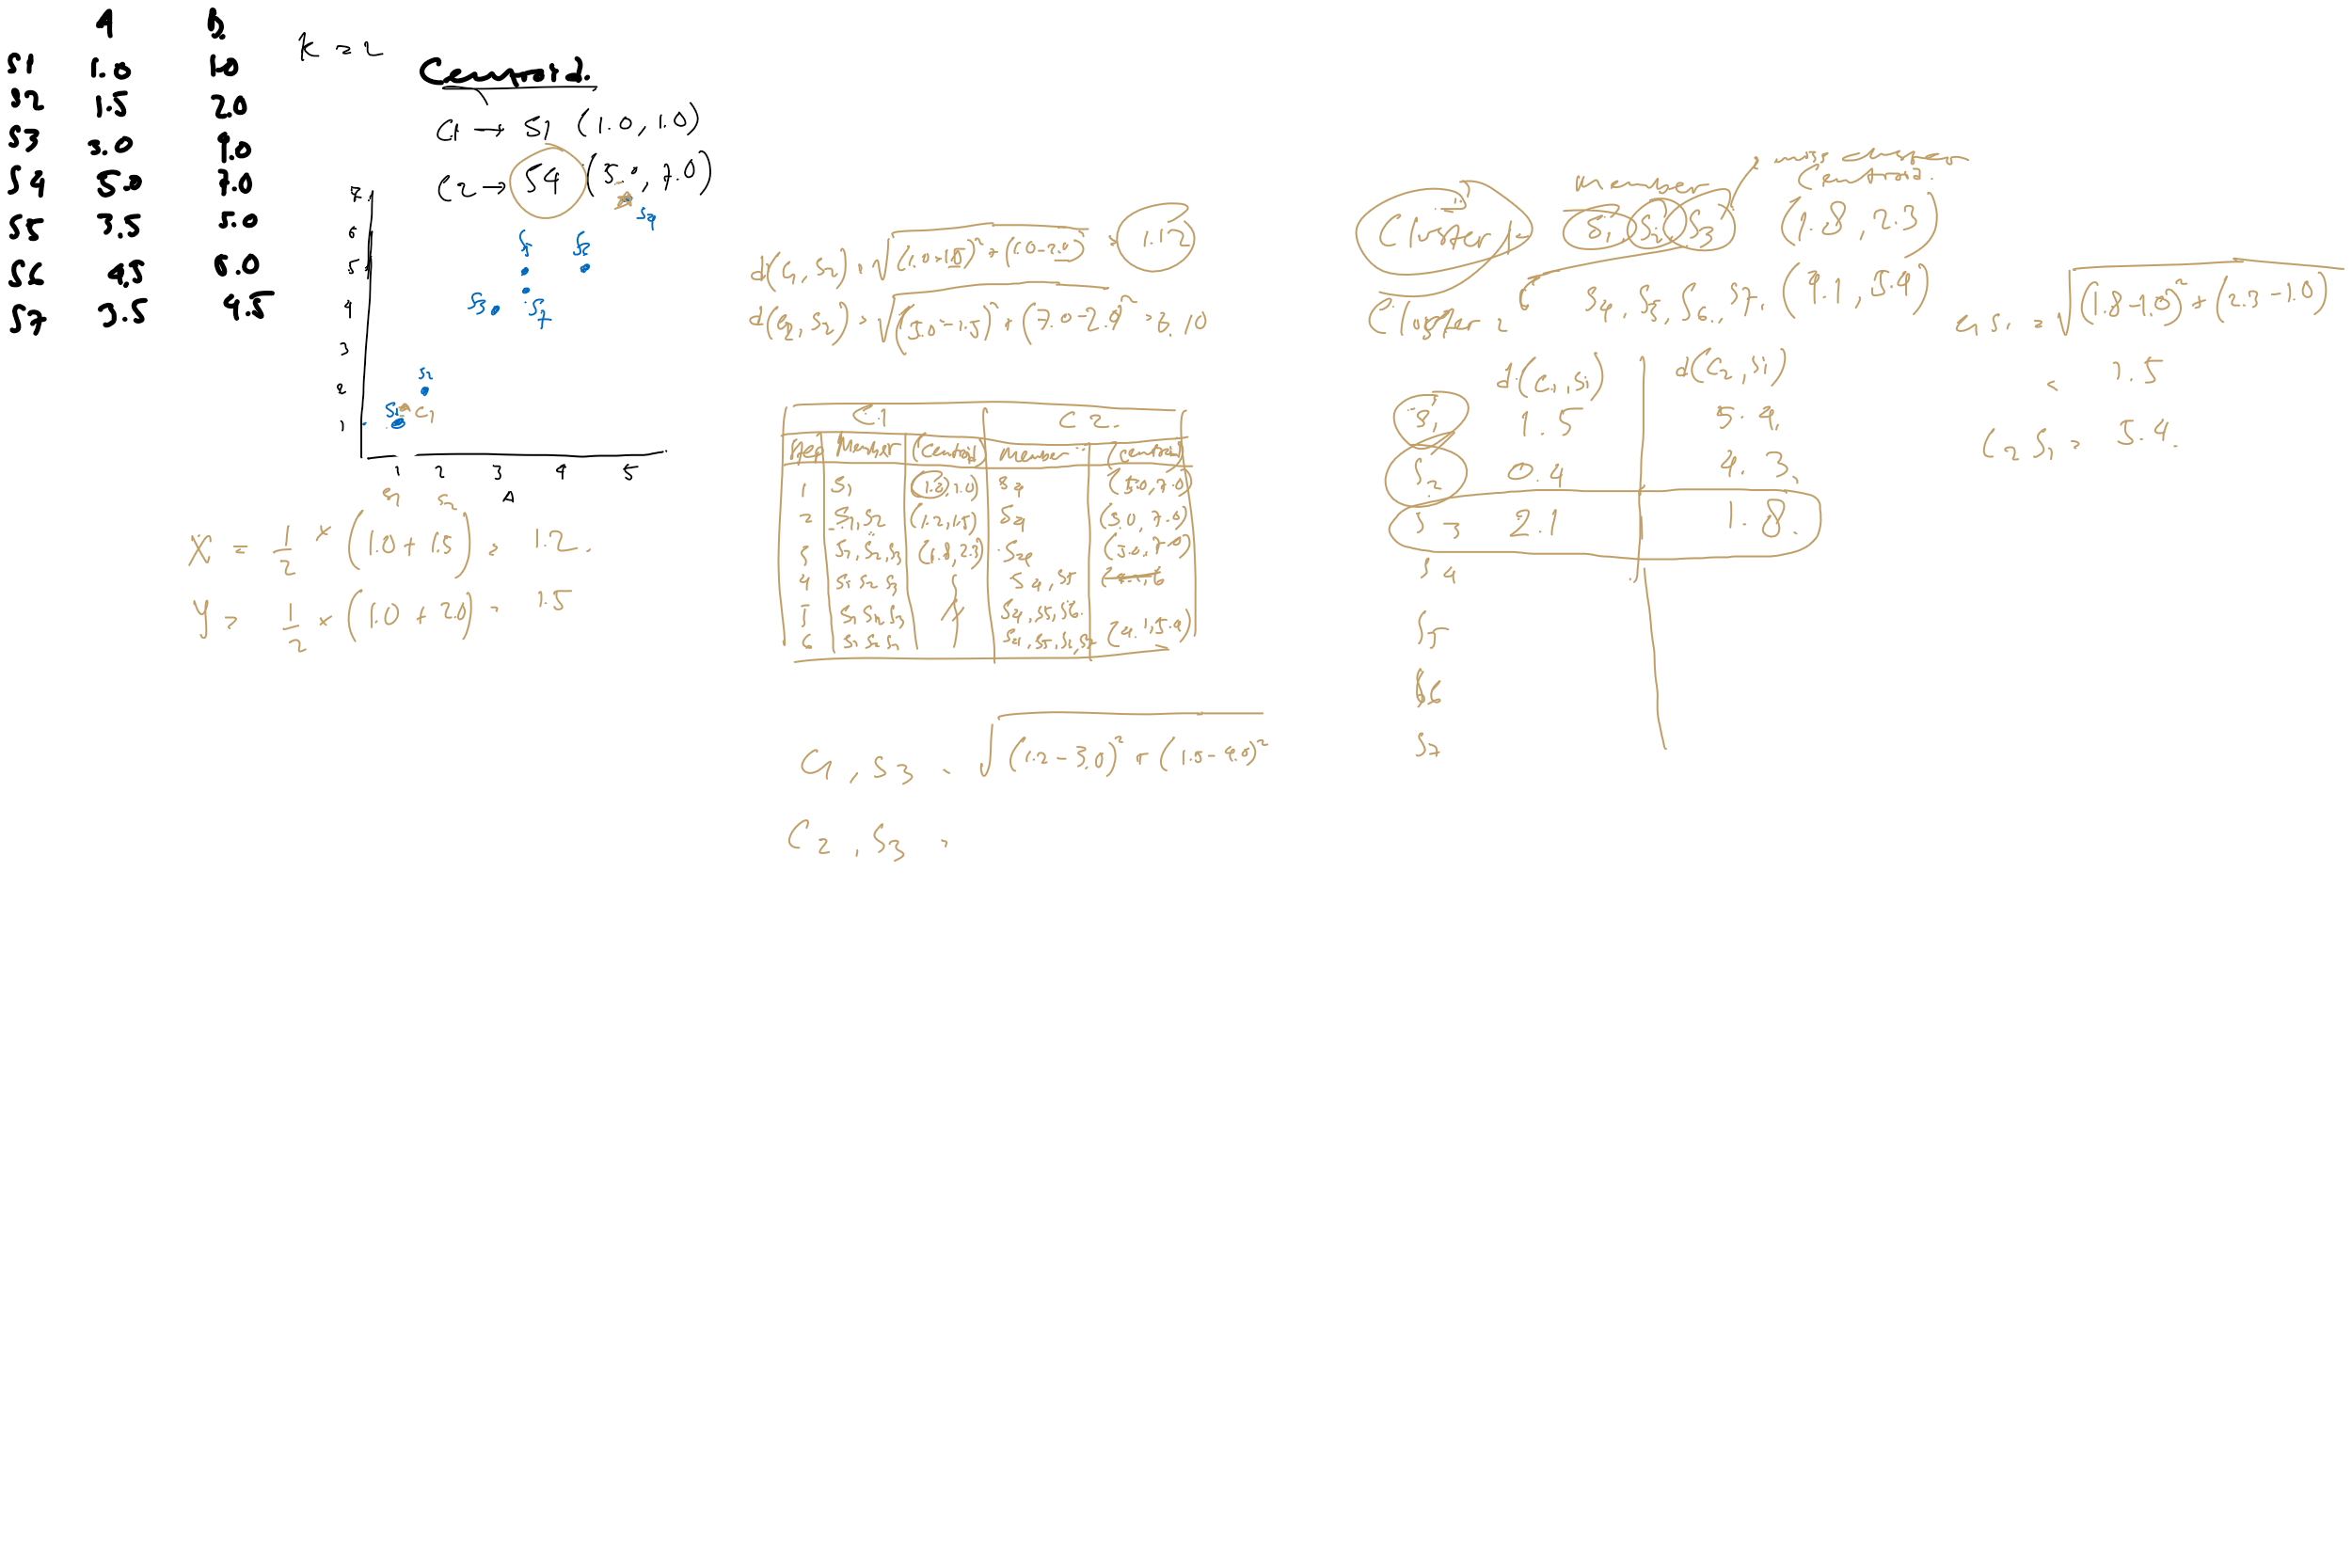 A B
S1 1.0 1.0
S2 1.5 2.0
S3 3.0 4.0
S4 5.0 7.0
S5 3.5 5.0
S6 4.5 5.0
S7 3.5 4.5
K = 2
Centroid.
C1 → S1 (1.0, 1.0)
C2 → S4 (5.0, 7.0)
7
6
5
4
3
2
1
1 2 3 4 5
A
S4
S5 S6
S3 S7
S2
S1 C1
S1 S2
X = 1/2 × (1.0 + 1.5) = 1.2.
Y = 1/2 × (1.0 + 2.0) = 1.5
d(C1, S2) = √(1.0-1.5)² + (1.0-2.0) = 1.12
d(C2, S2) = √(5.0-1.5)² + (7.0-2.0)² = 6.10
C1 C2.
Step Member (Centroid) Member (Centroid)
1 S1 (1.0, 1.0) S4 (5.0, 7.0)
2 S1, S2 (1.2, 1.5) S4 (5.0, 7.0)
3 S1, S2, S3 (1.8, 2.3) S4 (5.0, 7.0)
4 S1 S2 S3 S4, S5
5 S1 S2 S3 S4, S5, S6.
6 S1 S2 S3 S4, S5, S6, S7 (4.1, 5.4)
C1, S3 = √(1.2 - 3.0)² + (1.5 - 4.0)²
C2, S3 =
Member Centroid.
Cluster 1 S1, S2 S3 (1.8, 2.3)
Cluster 2 S4, S5, S6, S7. (4.1, 5.4)
d(C1, Si) d(C2, Si)
S1 1.5 5.4,
S2 0.4 4.3,
S3 2.1 1.8.
S4
S5
S6
S7
C1 S1 = √(1.8-1.0)² + (2.3-1.0)
= 1.5
C2 S1 = 5.4.